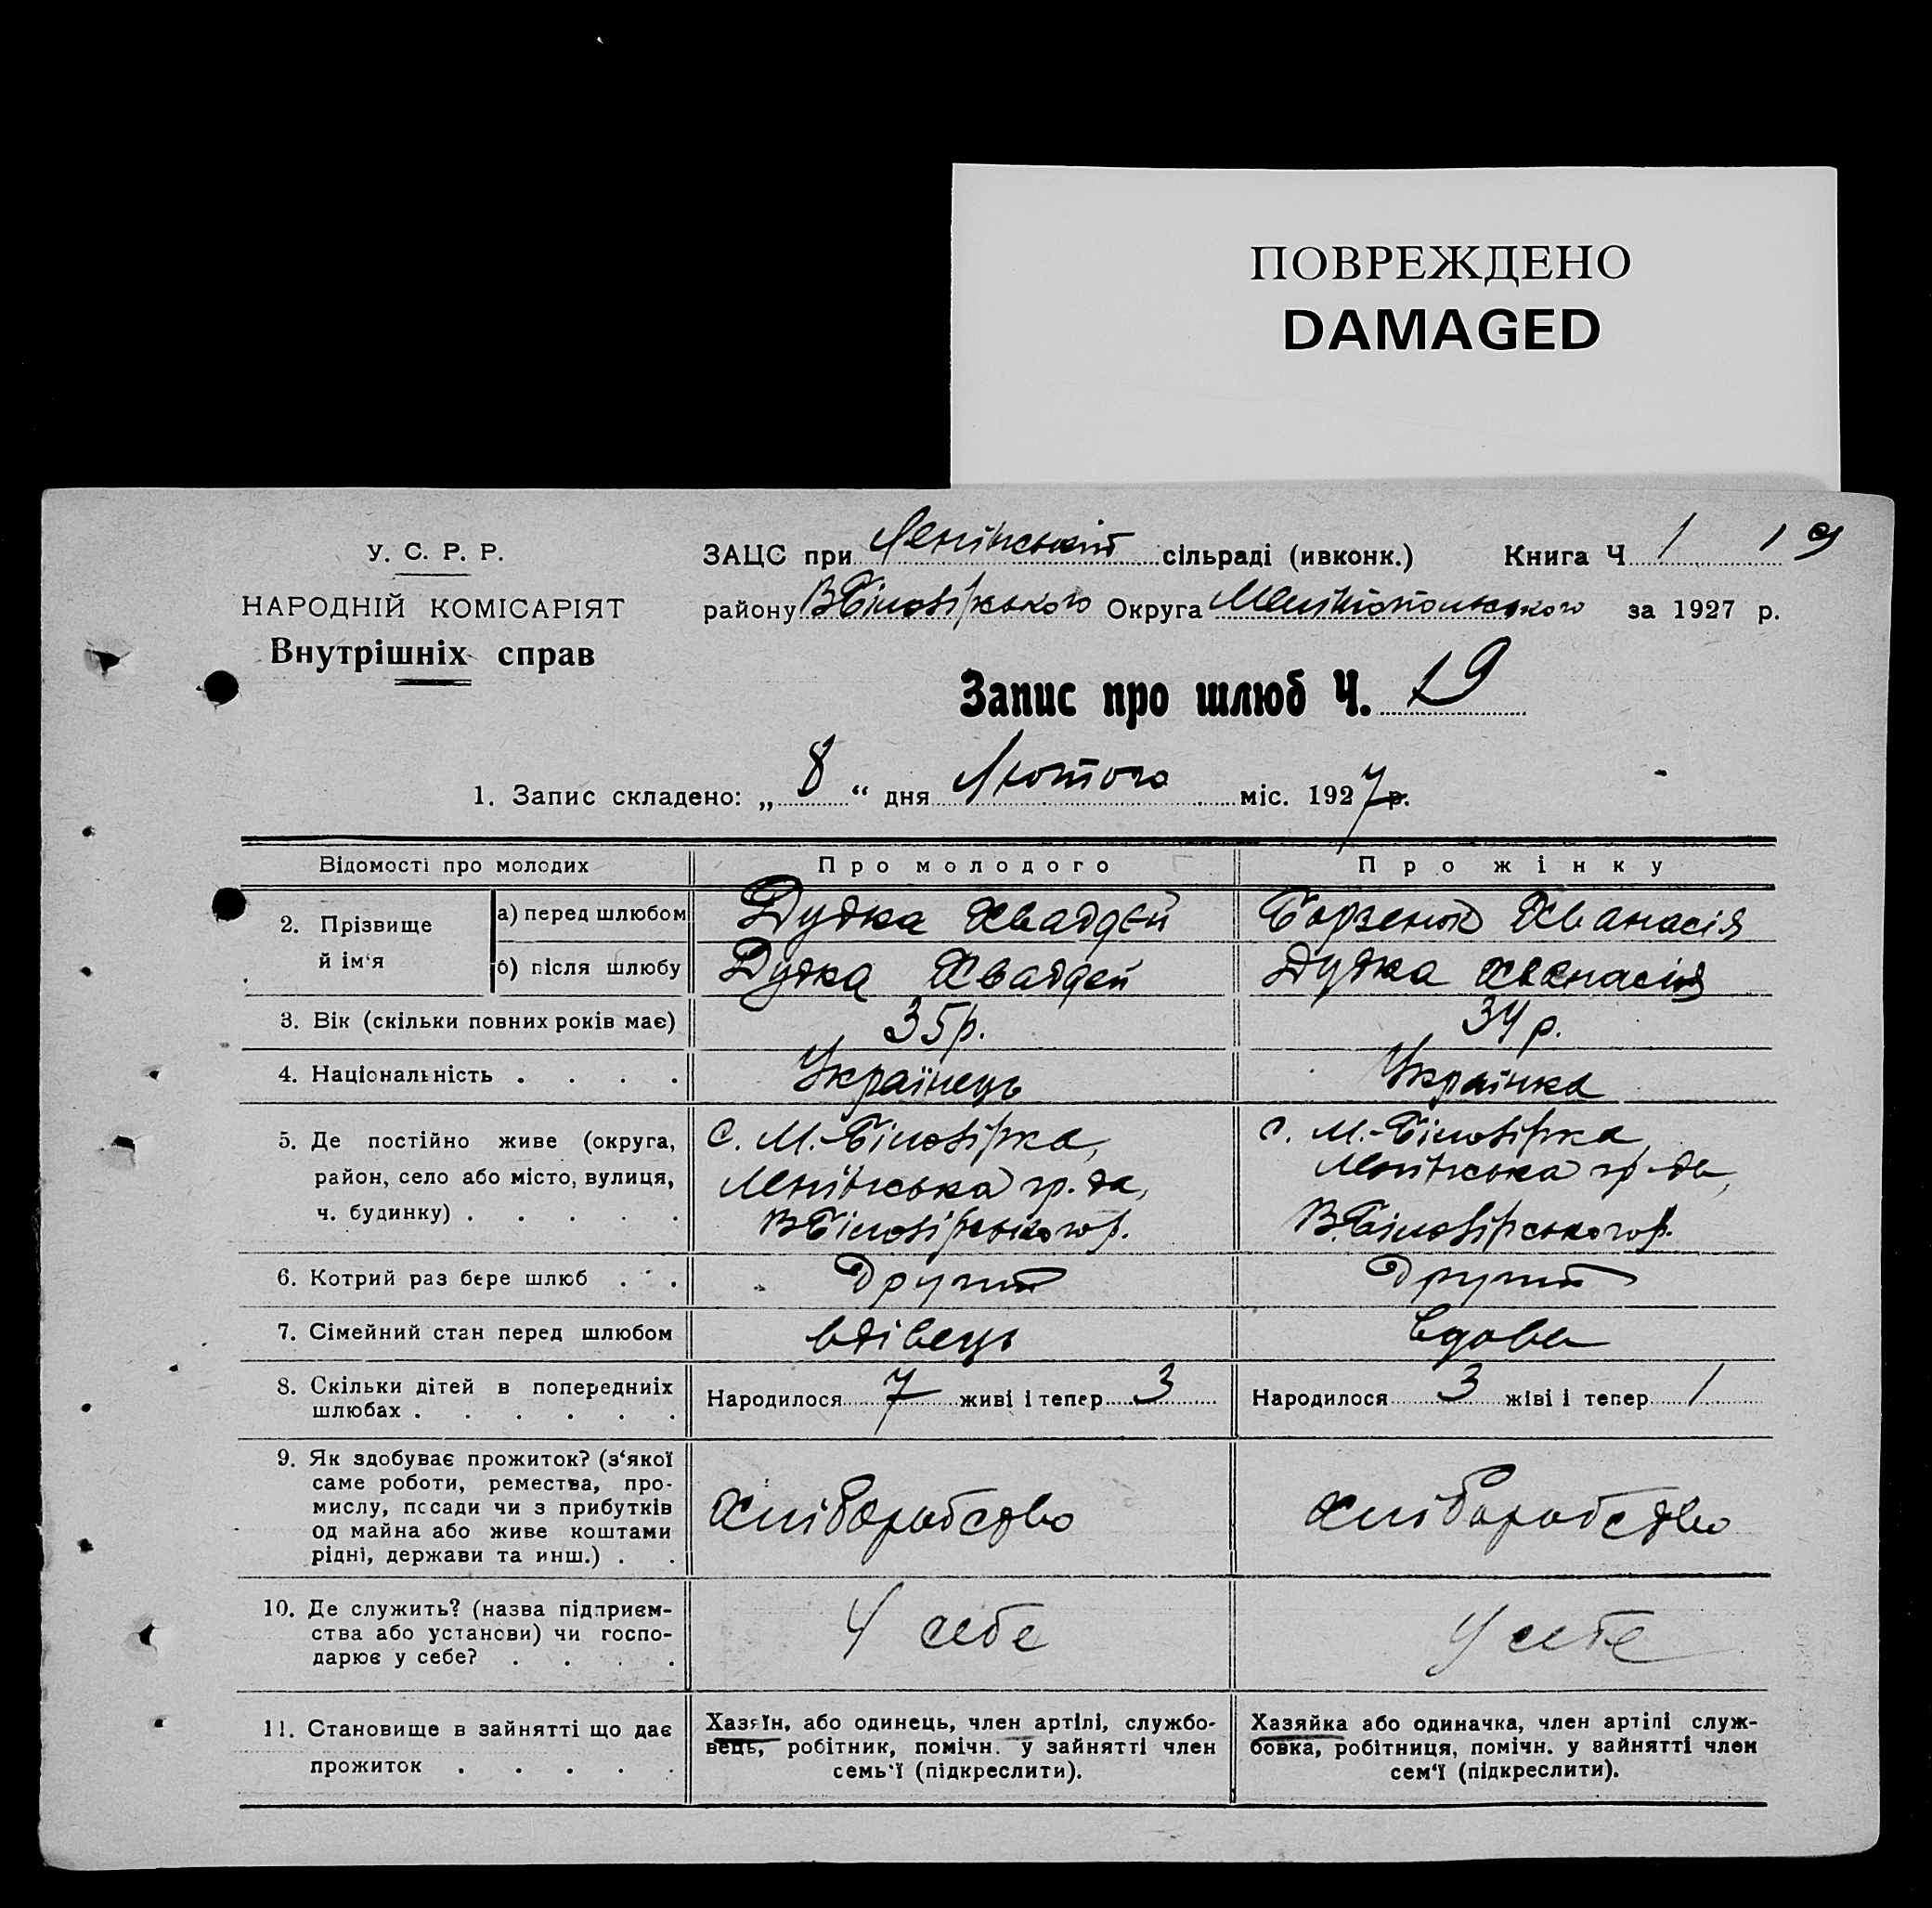 ПОВРЕЖДЕНО
DAMAGED
У. С. Р. Р.
НАРОДНІЙ КОМІСАРІЯТ
Внутрішніх справ
ЗАЦС при Ленінській сільраді (ивконк.) Книга Ч 1 19
району В Білозірського Округа Мелітопольського за 1927 р.
Запис про шлюб Ч. 19
1. Запис складено: „ 8 “ дня Лютого міс. 1927 р.
Відомості про молодих Про молодого Про жінку
2. Прізвище й ім‘я
а) перед шлюбом Дудка Хваддей Борзенок Хванасія
б) після шлюбу Дудка Хваддей Дудка Хванасія
3. Вік (скільки повних років має) 35 р. 34 р.
4. Національність . . . . Українець Українка
5. Де постійно живе (округа,
район, село або місто, вулиця,
ч. будинку) . . . . .
с. М.-Білозірка,
Ленінська гр. да,
В Білозірського р.
с. М.-Білозірка,
Ленінська гр-да,
В. Білозірського р.
6. Котрий раз бере шлюб . . . Другий Другий
7. Сімейний стан перед шлюбом вдівець вдова
8. Скільки дітей в попередниіх
шлюбах . . . . . .
Народилося 7 живі і тепер 3 Народилося 3 жіві і тепер 1
9. Як здобуває прожиток? (з‘якої
саме роботи, ремества, про-
мислу, посади чи з прибутків
од майна або живе коштами
рідні, держави та инш.) . .
Хліборобство Хліборобство
10. Де служить? (назва підприєм-
ства або установи) чи госпо-
дарює у себе? . . . .
У себе У себе
11. Становище в зайнятті що дає
прожиток . . . . .
Хазяїн, або одинець, член артілі, службо-
вець, робітник, помічн. у зайнятті член
семь‘ї (підкреслити).
Хазяйка або одиначка, член артілі служ-
бовка, робітниця, помічн. у зайнятті член
сем‘ї (підкреслити).